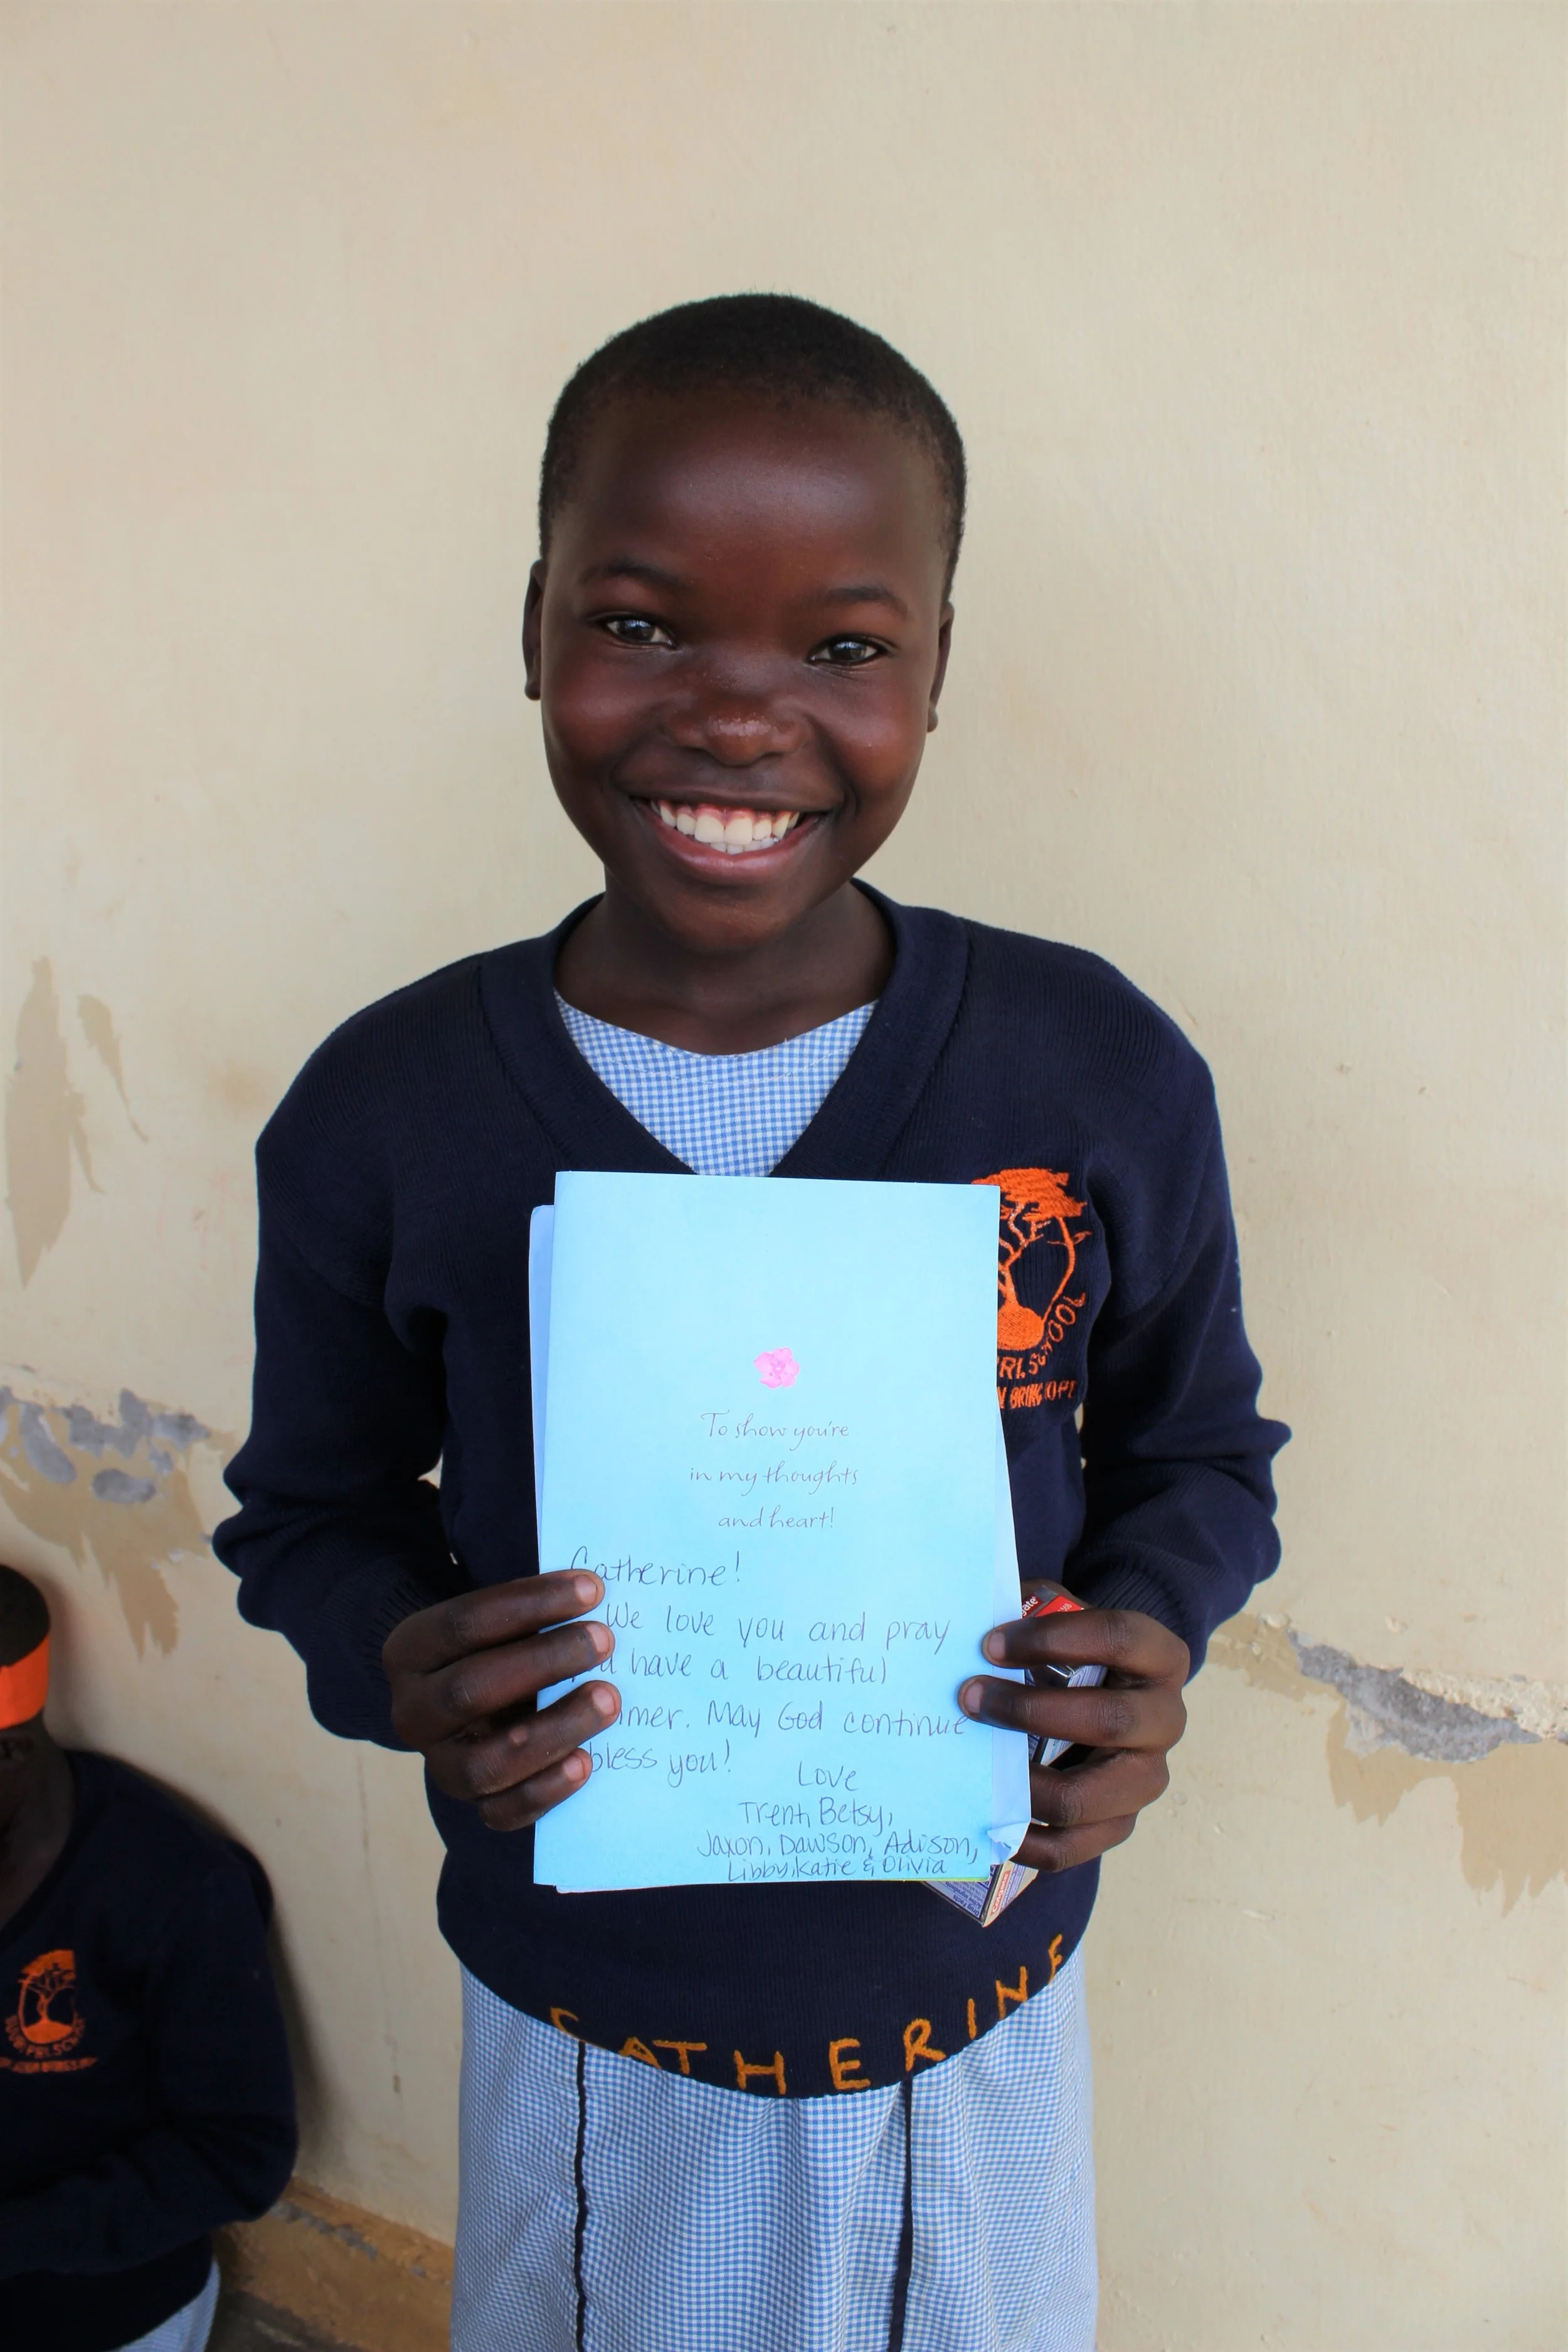 SCHOOL
To show you're
in my thoughts
and heart!
Catherine!
We love you and pray
have a beautiful
May God continue
bless you!
Love
Trent, Betsy,
Jaxon, Dawson, Adison,
Libby, Katie & Olivia
CATHERINE